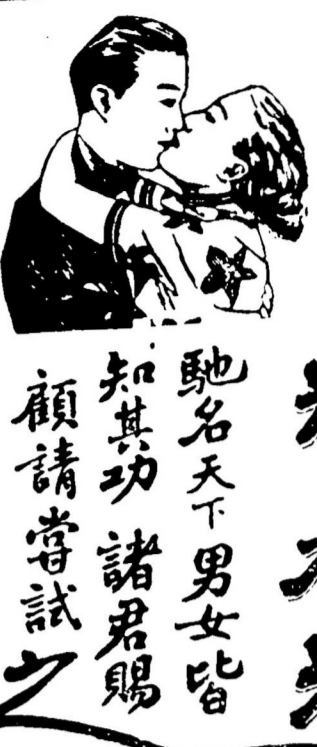 馳名天下男女皆
知其功 諸君賜
顧請嘗試之